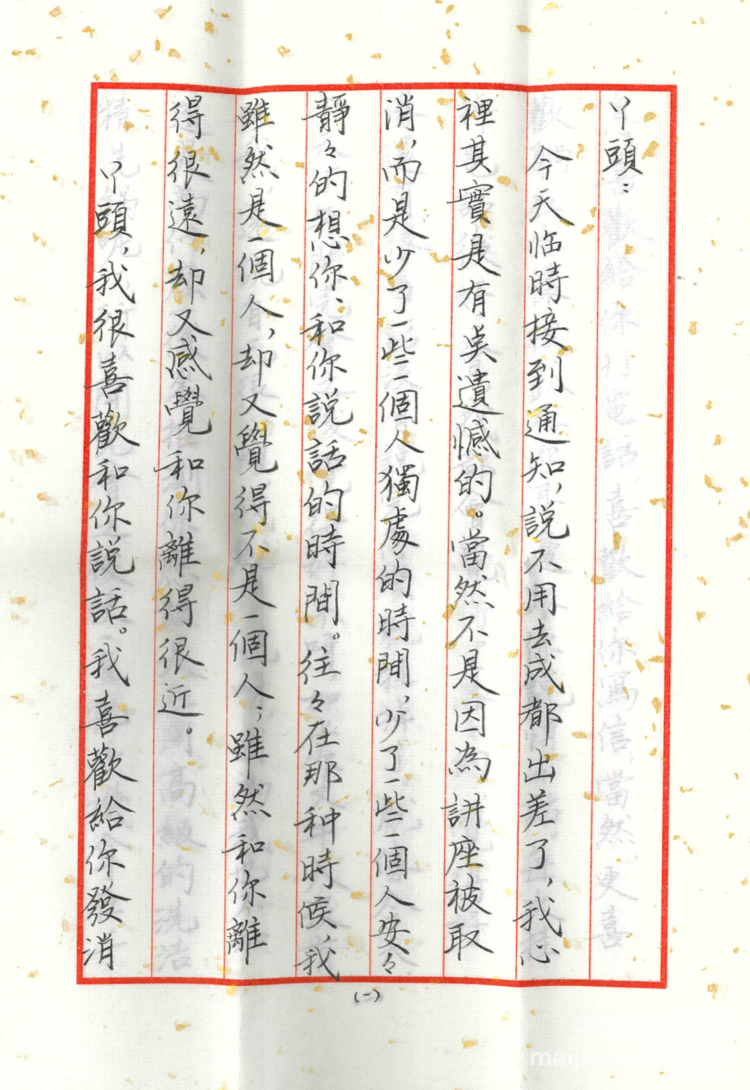 丫頭：
今天临時接到通知，説不用去成都出差了，我心
裡其實是有奌遺憾的。當然不是因為講座被取
消，而是少了一些一個人獨處的時間，少了一些一個人安々
靜々的想你、和你説話的時間。往々在那种時候，我
雖然是一個人，却又覺得不是一個人；雖然和你離
得很遠，却又感覺和你離得很近。
丫頭，我很喜歡和你説話。我喜歡給你發消
(一)